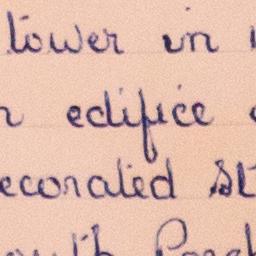 tower in
edifice
ecorated St
outh Porch